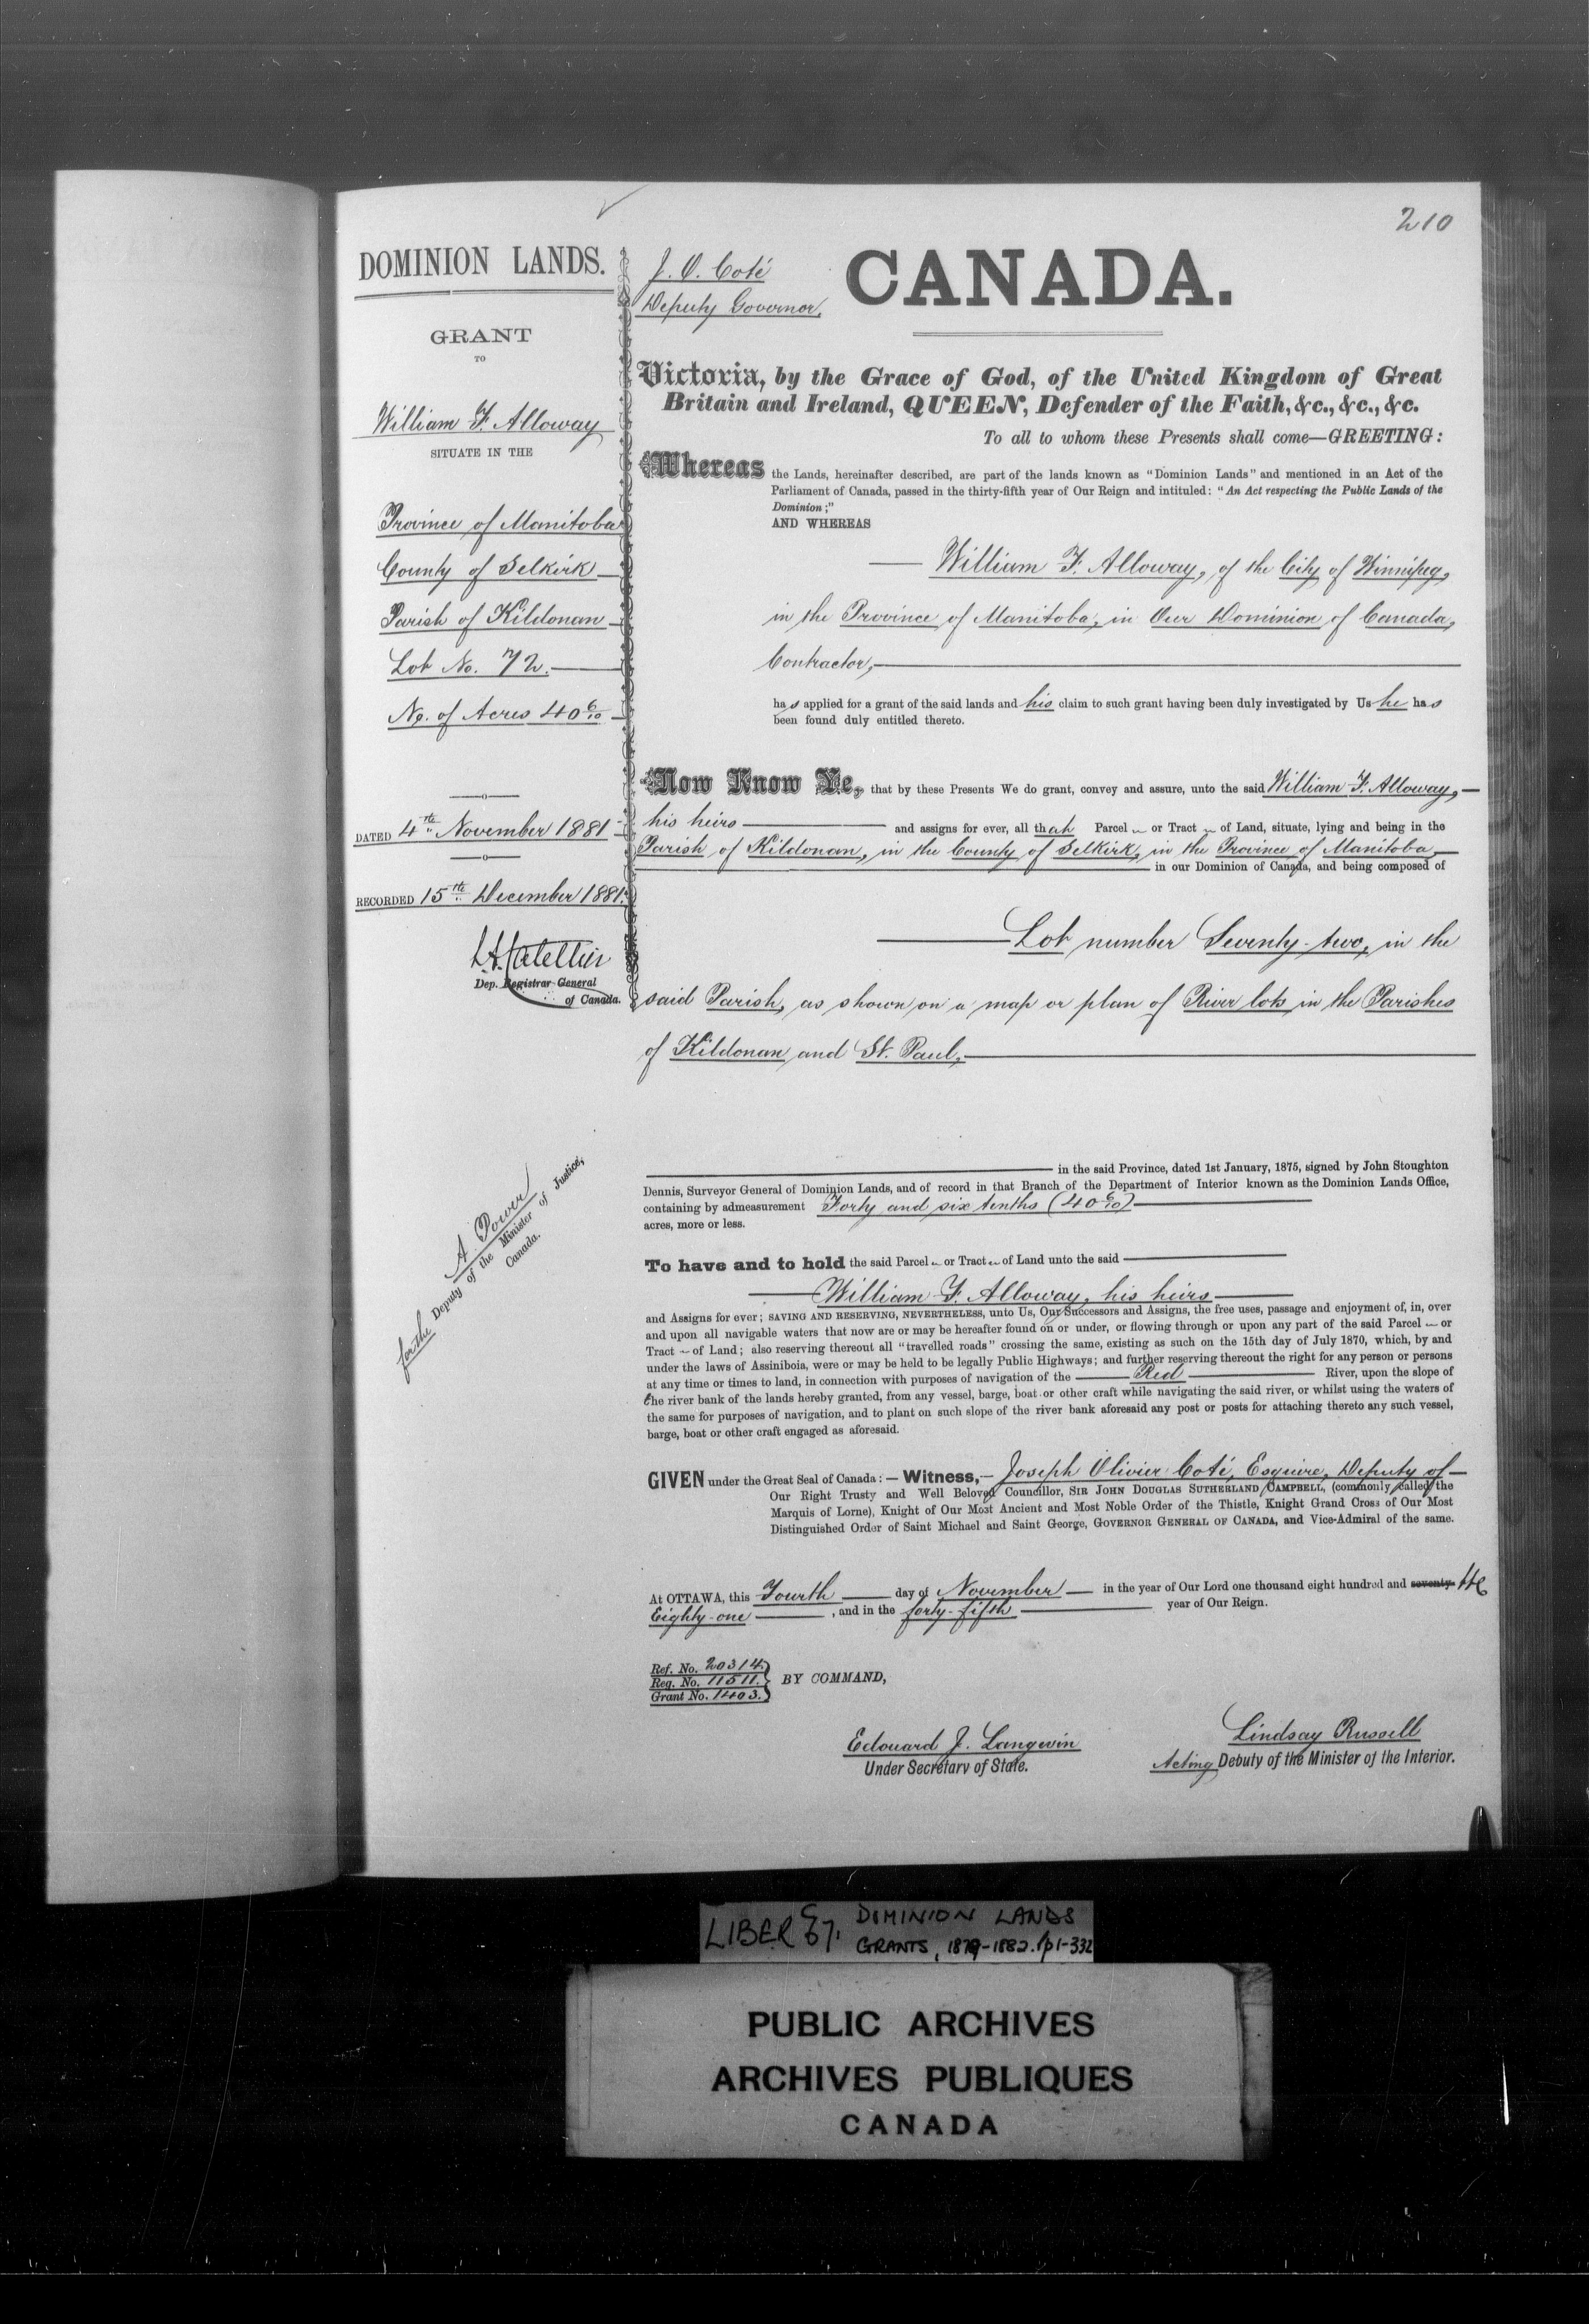 210
DOMINION LANDS.
GRANT
TO
William F. Alloway
SITUATE IN THE
Province of Manitoba
County of Selkirk
Parish of Kildonan
Lot No. 72.
No. of Acres 40 6/10
DATED 4th November 1881
RECORDED 15th December 1881.
Dep. Registrar General
of Canada.
A. Power
for the Deputy of the Minister of Justice,
Canada.
J. O. Coté
Deputy Governor.
CANADA.
Victoria, by the Grace of God, of the United Kingdom of Great
Britain and Ireland, QUEEN, Defender of the Faith, &c., &c., &c.
To all to whom these Presents shall come—GREETING:
Whereas the Lands, hereinafter described, are part of the lands known as "Dominion Lands" and mentioned in an Act of the
Parliament of Canada, passed in the thirty-fifth year of Our Reign and intituled: "An Act respecting the Public Lands of the
Dominion;"
AND WHEREAS
William F. Alloway, of the City of Winnipeg,
in the Province of Manitoba, in Our Dominion of Canada,
Contractor,
has applied for a grant of the said lands and his claim to such grant having been duly investigated by Us he has
been found duly entitled thereto.
Now Know Ye, that by these Presents We do grant, convey and assure, unto the said William F. Alloway,
his heirs and assigns for ever, all that Parcel or Tract of Land, situate, lying and being in the
Parish of Kildonan, in the County of Selkirk, in the Province of Manitoba
in our Dominion of Canada, and being composed of
Lot number Seventy-two, in the
said Parish, as shown on a map or plan of River lots in the Parishes
of Kildonan and St. Paul,
in the said Province, dated 1st January, 1875, signed by John Stoughton
Dennis, Surveyor General of Dominion Lands, and of record in that Branch of the Department of Interior known as the Dominion Lands Office,
containing by admeasurement Forty and six tenths (40 6/10)
acres, more or less.
To have and to hold the said Parcel or Tract of Land unto the said
William F. Alloway, his heirs
and Assigns for ever; SAVING AND RESERVING, NEVERTHELESS, unto Us, Our Successors and Assigns, the free uses, passage and enjoyment of, in, over
and upon all navigable waters that now are or may be hereafter found on or under, or flowing through or upon any part of the said Parcel or
Tract of Land; also reserving thereout all "travelled roads" crossing the same, existing as such on the 15th day of July 1870, which, by and
under the laws of Assiniboia, were or may be held to be legally Public Highways; and further reserving thereout the right for any person or persons
at any time or times to land, in connection with purposes of navigation of the Red River, upon the slope of
the river bank of the lands hereby granted, from any vessel, barge, boat or other craft while navigating the said river, or whilst using the waters of
the same for purposes of navigation, and to plant on such slope of the river bank aforesaid any post or posts for attaching thereto any such vessel,
barge, boat or other craft engaged as aforesaid.
GIVEN under the Great Seal of Canada:—Witness,—Joseph Olivier Coté, Esquire, Deputy of
Our Right Trusty and Well Beloved Councillor, SIR JOHN DOUGLAS SUTHERLAND CAMPBELL, (commonly called the
Marquis of Lorne), Knight of Our Most Ancient and Most Noble Order of the Thistle, Knight Grand Cross of Our Most
Distinguished Order of Saint Michael and Saint George, GOVERNOR GENERAL OF CANADA, and Vice-Admiral of the same.
At OTTAWA, this Fourth day of November in the year of Our Lord one thousand eight hundred and seventy-
Eighty-one, and in the forty-fifth year of Our Reign.
Ref. No. 20314.
Reg. No. 11511.
Grant No. 1403.
BY COMMAND,
Edouard J. Langevin
Under Secretary of State.
Lindsay Russell
Acting Deputy of the Minister of the Interior.
LIBER 67. DOMINION LANDS
GRANTS, 1879-1882. pp1-332
PUBLIC ARCHIVES
ARCHIVES PUBLIQUES
CANADA